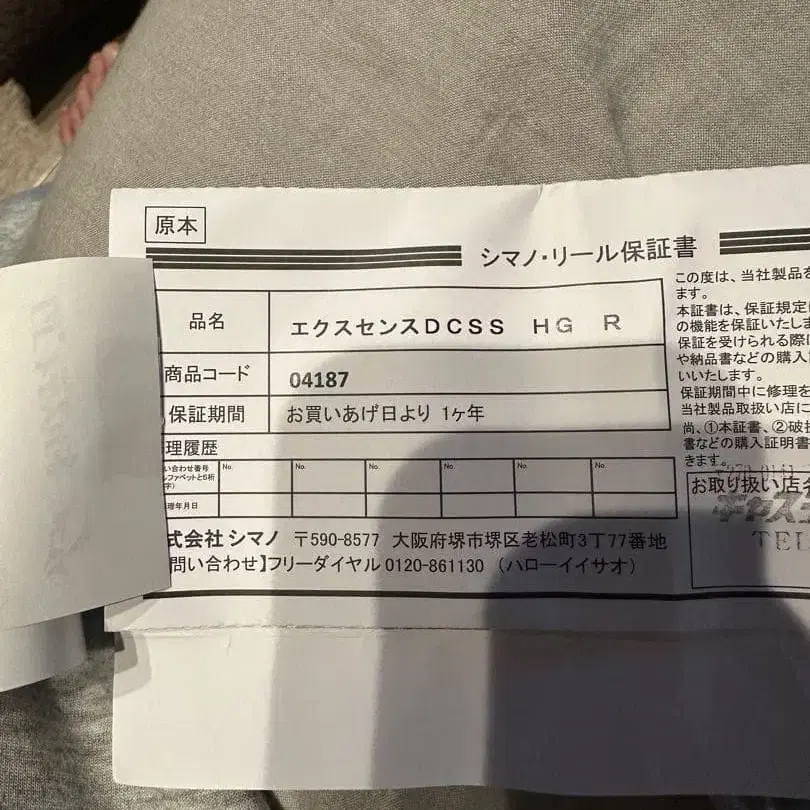 原本
シマノ・リール保証書
品名 エクスセンスDCSS HG R
商品コード 04187
保証期間 お買いあげ日より 1ヶ年
理履歴
い合わせ番号 No. No. No. No. No. No.
ルファベットと5桁
字)
理年月日
式会社シマノ 〒590-8577 大阪府堺市堺区老松町3丁77番地
問い合わせ】フリーダイヤル 0120-861130 (ハローイイサオ)
この度は、当社製品を
ます。
本証書は、保証規定に
の機能を保証いたしま
保証を受けられる際に
や納品書などの購入
いいたします。
保証期間中に修理を
当社製品取扱い店に
尚、①本証書、②破損
書などの購入証明書
きます。
お取り扱い店名
TEL